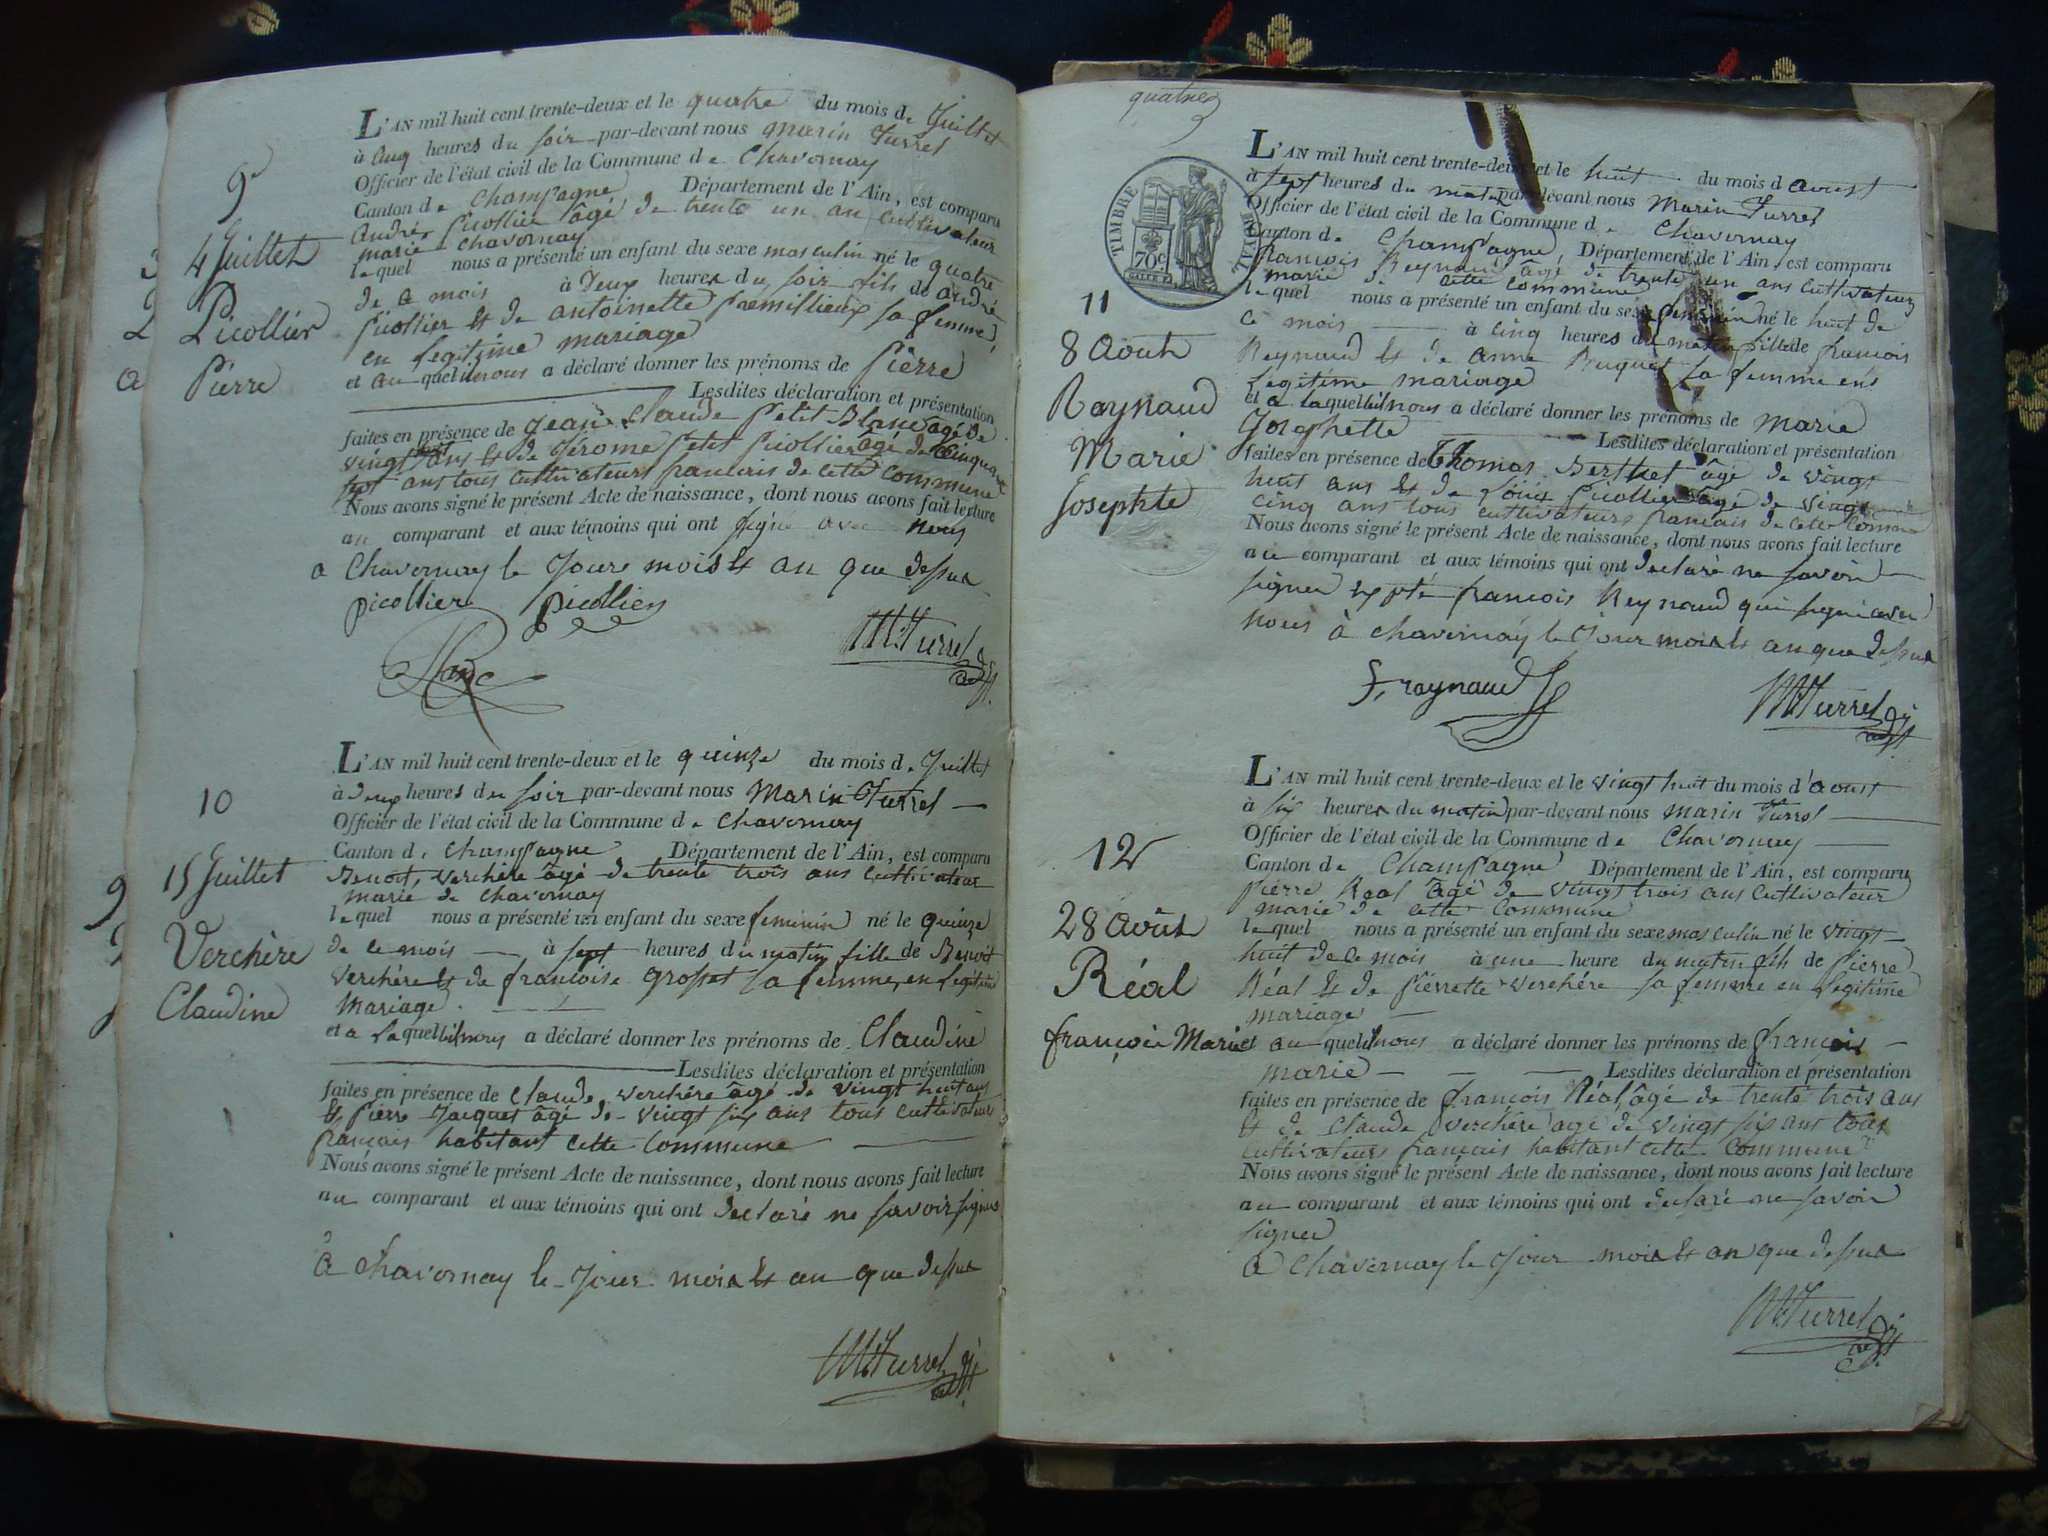 9e
4 Juillet
Picollier
Pierre
L'AN mil huit cent trente-deux et le quatre du mois de Juillet
à cinq heures du soir par-devant nous Marin Turrel
Officier de l'état civil de la Commune de Chavornay
Canton de Champagne Département de l'Ain, est comparu
André Picollier âgé de trente un an cultivateur
marié Chavornay
lequel nous a présenté un enfant du sexe masculin né le quatre
de ce mois à Deux heures du soir fils de André
Picollier et de antoinette Premillieux sa femme,
en legitime mariage
et au quel il nous a déclaré donner les prénoms de Pierre
Lesdites déclaration et présentation
faites en présence de Jean Claude Petit Blanc âgé de
vingt ans et de Jérome Petit Picollier âgé de cinquante
sept ans tous cultivateurs francais de cette commune
Nous avons signé le présent Acte de naissance, dont nous avons fait lecture
au comparant et aux témoins qui ont signé avec nous
a Chavornay le Jour mois et an que dessus
picollier picollier
Blanc
M. Turrel
10
15 Juillet
Verchère
Claudine
L'AN mil huit cent trente-deux et le quinze du mois de Juillet
à Deux heures du soir par-devant nous Marin Turrel
Officier de l'état civil de la Commune de Chavornay
Canton de Champagne Département de l'Ain, est comparu
Benoit Verchère âgé de trente trois ans cultivateur
marié de Chavornay
lequel nous a présenté un enfant du sexe feminin né le quinze
de ce mois à sept heures du matin fille de Benoit
Verchère et de francoise Grosset sa femme, en legitime
mariage
et a laquelle il nous a déclaré donner les prénoms de Claudine
Lesdites déclaration et présentation
faites en présence de Claude Verchère âgé de vingt huit ans
et Pierre Jacquet âgé de vingt six ans tous cultivateurs
francais habitant cette Commune
Nous avons signé le présent Acte de naissance, dont nous avons fait lecture
au comparant et aux témoins qui ont declaré ne savoir signer
à Chavornay le Jour mois et an que dessus
M. Turrel
quatre
TIMBRE ROYAL
70c
11
8 Août
Raynaud
Marie
Josephte
L'AN mil huit cent trente-deux et le huit du mois d aoust
à sept heures du matin par-devant nous Marin Turrel
Officier de l'état civil de la Commune de Chavornay
Canton de Champagne, Département de l'Ain, est comparu
francois Reynaud âgé de trente un ans cultivateur
marié de cette commune
lequel nous a présenté un enfant du sexe feminin né le huit de
ce mois à cinq heures du matin fille de francois
Reynaud et de anne Bruquet sa femme en
Legitime mariage
et a laquelle il nous a déclaré donner les prénoms de Marie
Josephette
Lesdites déclaration et présentation
faites en présence de Thomas Berthet âgé de vingt
huit ans et de Louis Picollier âgé de vingt
cinq ans tous cultivateurs francais de cette Commune
Nous avons signé le présent Acte de naissance, dont nous avons fait lecture
au comparant et aux témoins qui ont declaré ne savoir
signer francois Reynaud qui signé avec
nous à chavornay le Jour mois et an que dessus
f, raynaud
M. Turrel
12
28 Août
Réal
françois Marie
L'AN mil huit cent trente-deux et le vingt huit du mois d'aoust
à six heures du matin par-devant nous marin Turrel
Officier de l'état civil de la Commune de Chavornay
Canton de Champagne Département de l'Ain, est comparu
Pierre Réal âgé de vingt trois ans cultivateur
marié de cette Commune
lequel nous a présenté un enfant du sexe masculin né le vingt
huit de ce mois à une heure du matin fils de Pierre
Réal et de Pierrette Verchère sa femme en legitime
mariage
et au quel il nous a déclaré donner les prénoms de françois
marie Lesdites déclaration et présentation
faites en présence de françois Réal, âgé de trente trois ans
et de Claude Verchère âgé de vingt six ans tous
cultivateurs francais habitant cette Commune
Nous avons signé le présent Acte de naissance, dont nous avons fait lecture
au comparant et aux témoins qui ont declaré ne savoir
signer
à Chavornay le Jour mois et an que dessus
M. Turrel